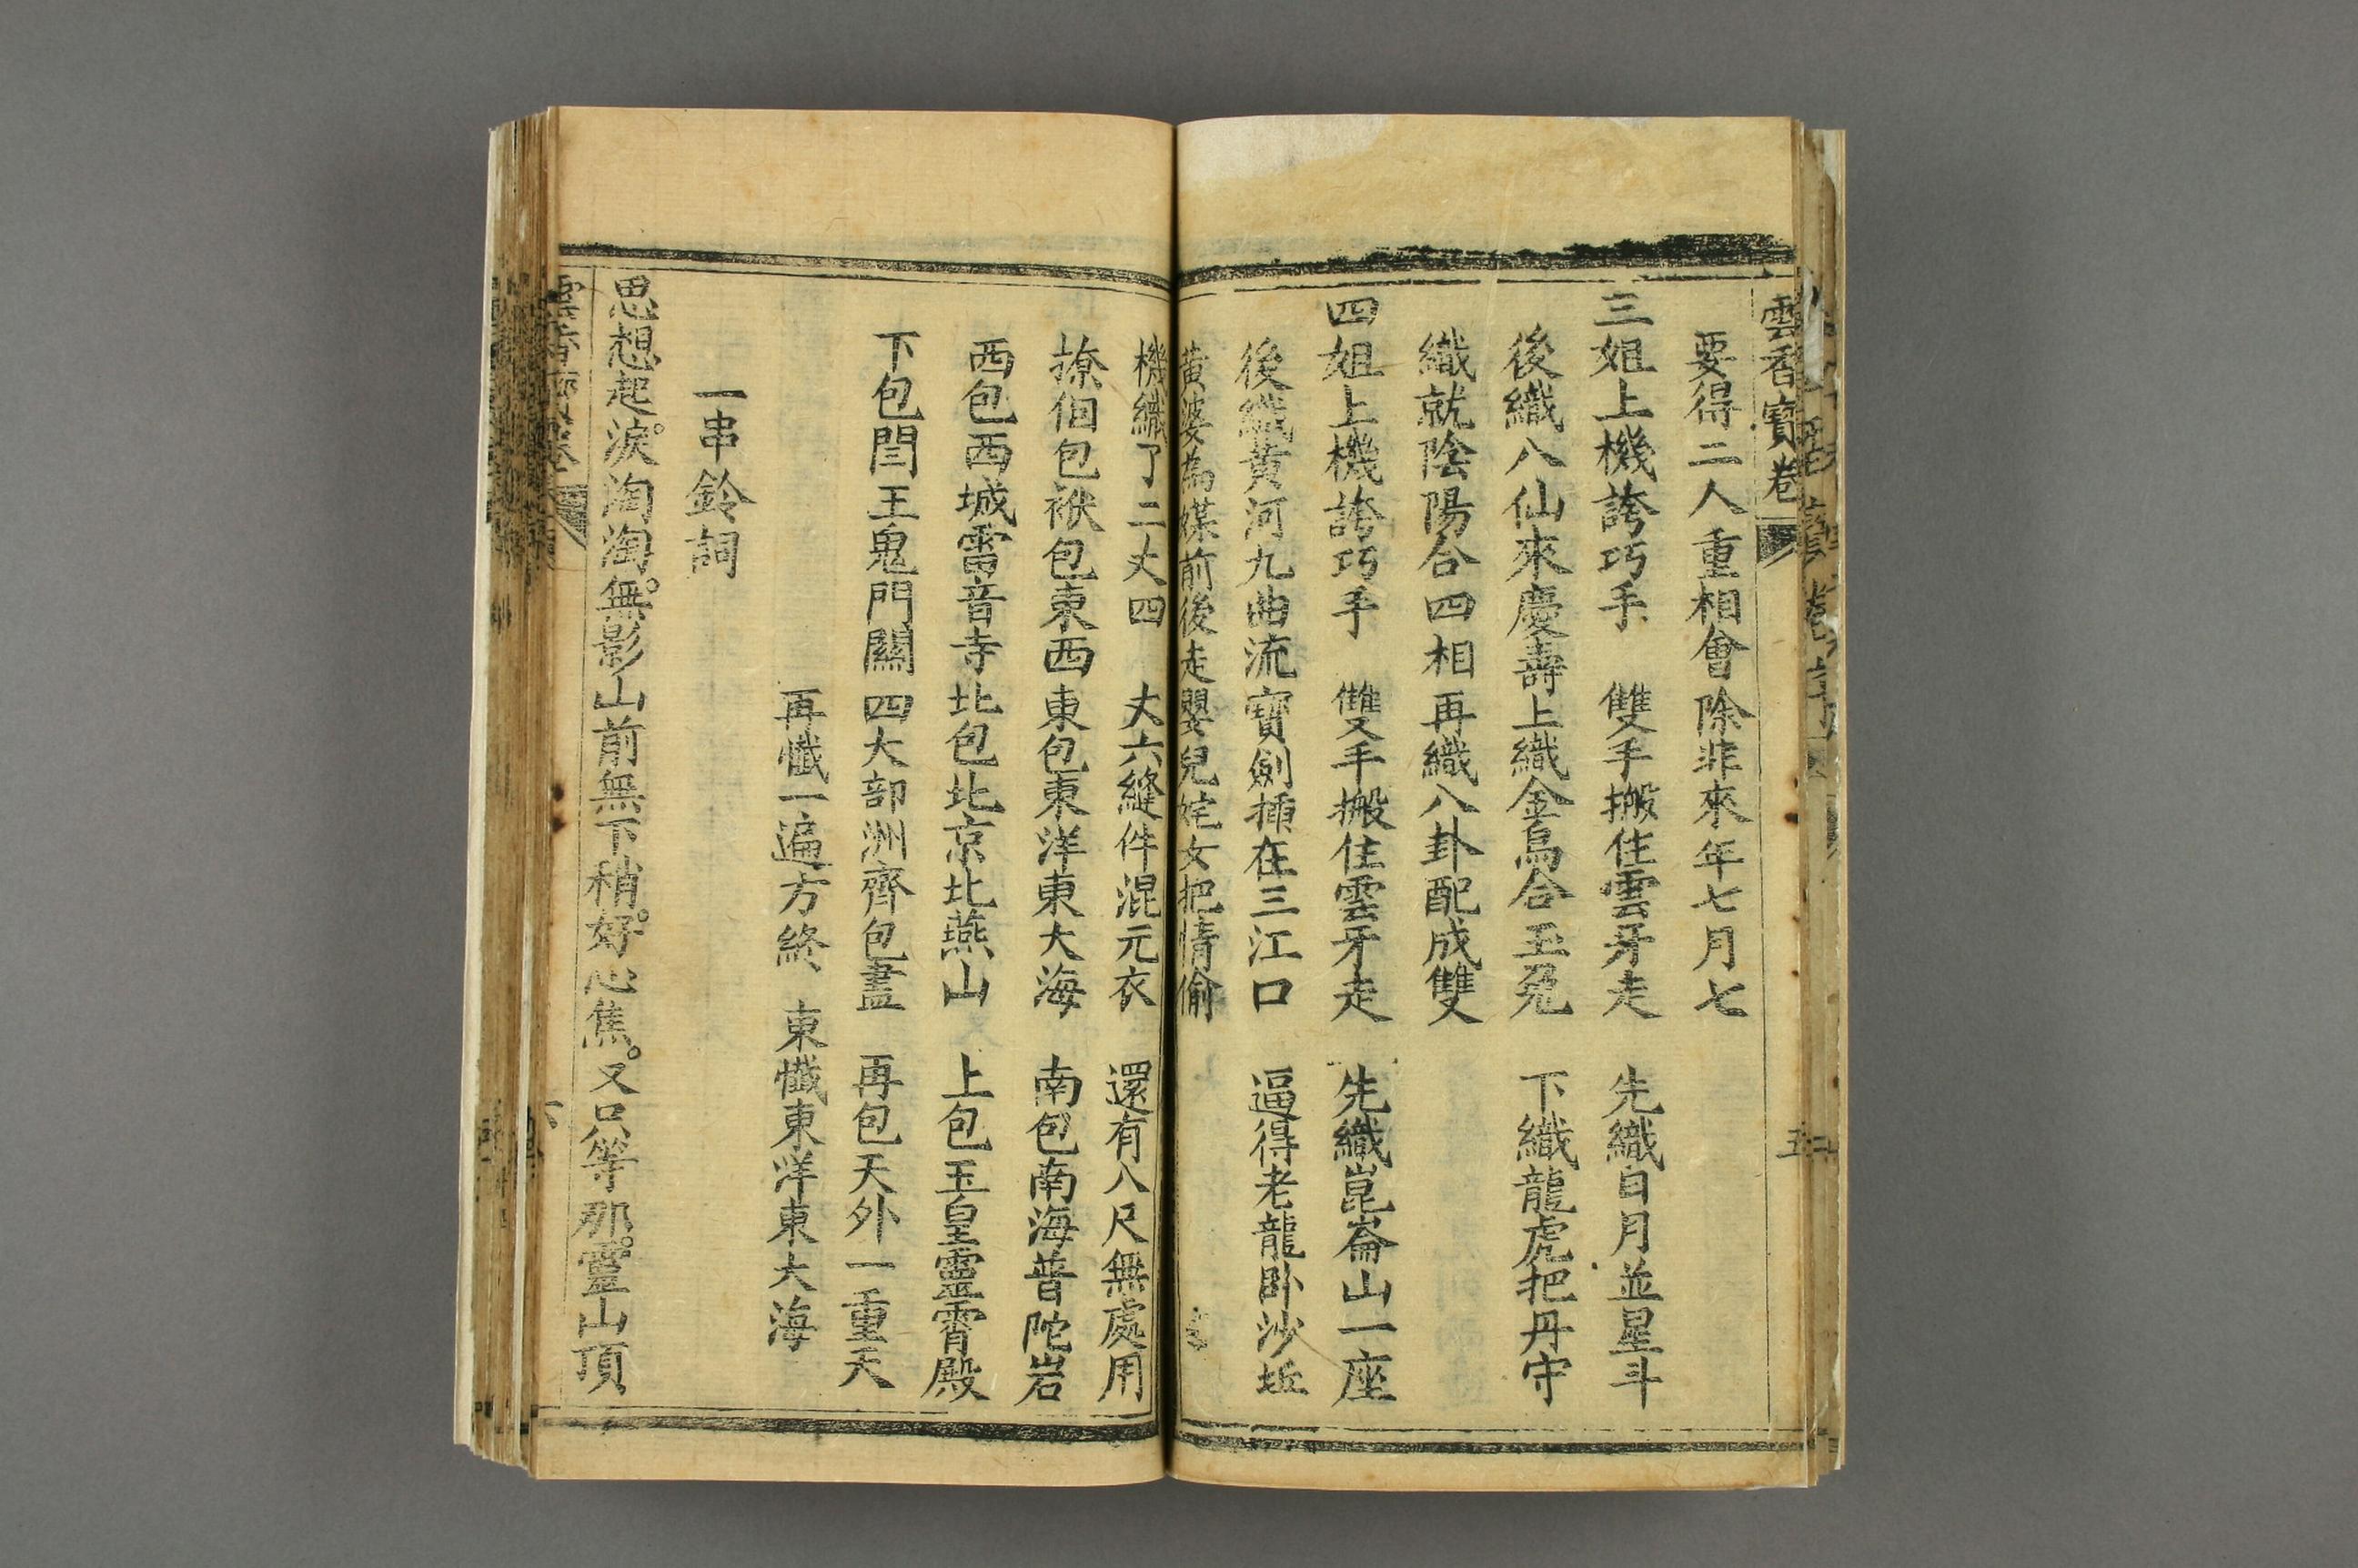 雲香寶卷
五
要得二人重相會 除非來年七月七
三姐上機誇巧手 雙手搬住雲牙走 先織日月並星斗
後織八仙來慶壽 上織金烏合玉兔 下織龍虎把丹守
織就陰陽合四相 再織八卦配成雙
四姐上機誇巧手 雙手搬住雲牙走 先織崑崙山一座
後織黃河九曲流 寶劍揷在三江口 逼得老龍卧沙坵
黃婆為媒前後走 嬰兒姹女把情偷
機織了二丈四 丈六縫件混元衣 還有八尺無處用
撩個包袱包東西 東包東洋東大海 南包南海普陀岩
西包西城雷音寺 北包北京北燕山 上包玉皇靈霄殿
下包閆王鬼門關 四大部洲齊包盡 再包天外一重天
再懺一遍方終 東懺東洋東大海
一串鈴詞
思想起淚。淘淘無。影山前無下稍好。心焦。又只等那。靈山頂